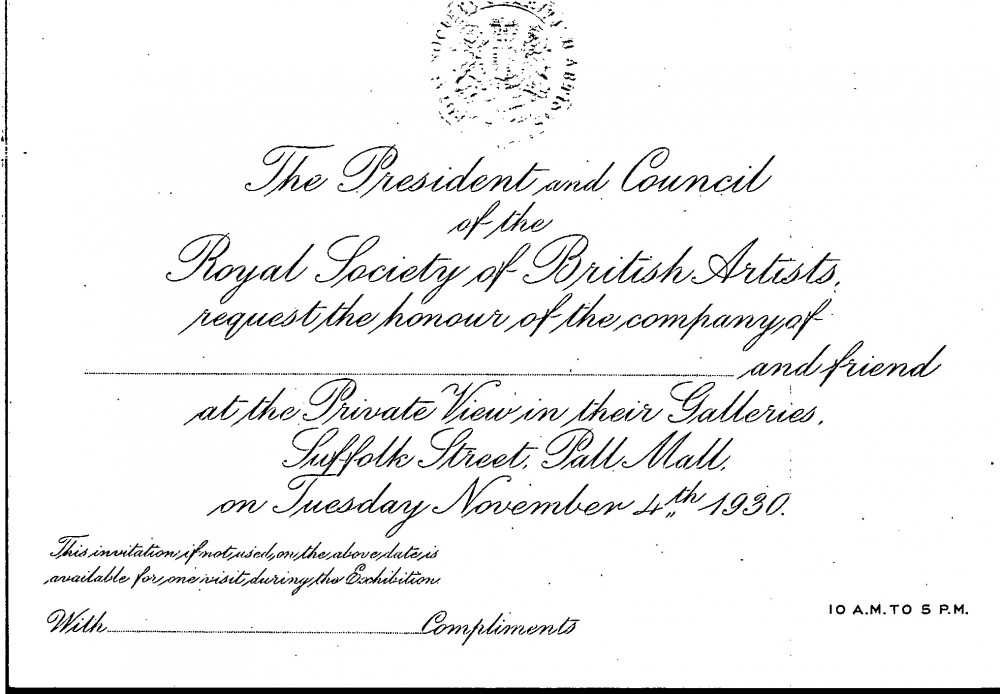 The President and Council
of the
Royal Society of British Artists,
request the honour of the company of
and friend
at the Private View in their Galleries,
Suffolk Street, Pall Mall,
on Tuesday November 4th 1930.
This invitation if not used on the above date is
available for one visit during the Exhibition
10 A.M. TO 5 P.M.
With Compliments